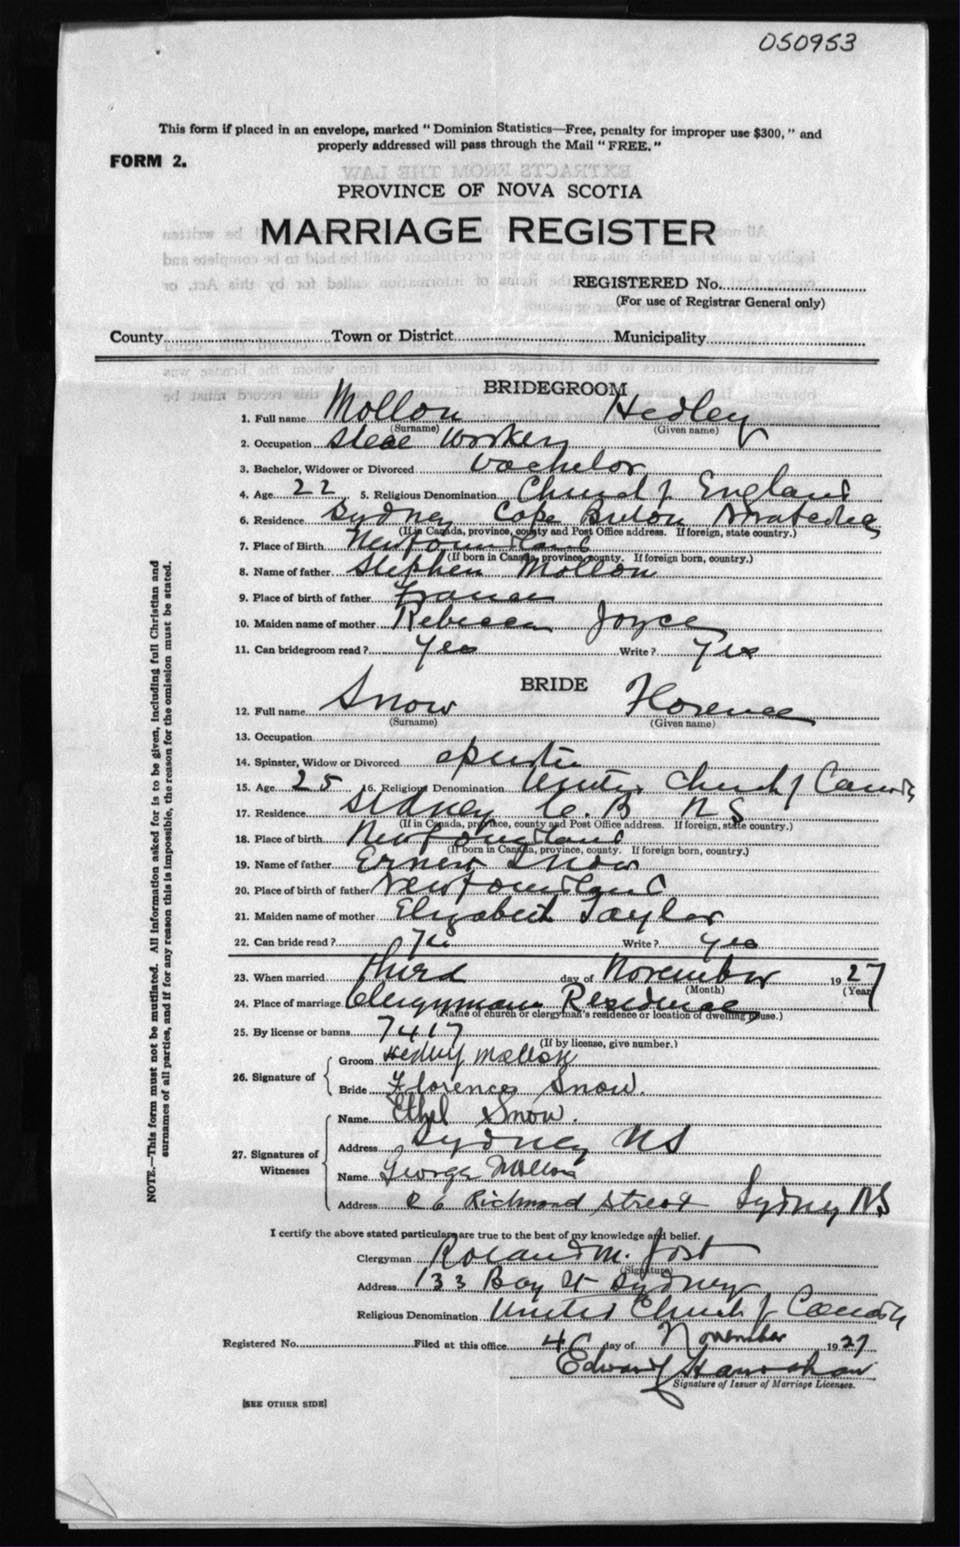 050953
This form if placed in an envelope, marked " Dominion Statistics—Free, penalty for improper use $300, " and
properly addressed will pass through the Mail " FREE. "
FORM 2.
PROVINCE OF NOVA SCOTIA
MARRIAGE REGISTER
REGISTERED No.
(For use of Registrar General only)
County Town or District Municipality
BRIDEGROOM
1. Full name Mollon Hedley
(Surname) (Given name)
2. Occupation Steel Worker
3. Bachelor, Widower or Divorced bachelor
4. Age 22 5. Religious Denomination Church of England
6. Residence Sydney Cape Breton
(If in Canada, province, county and Post Office address. If foreign, state country.)
7. Place of Birth Newfoundland
(If born in Canada, province, county. If foreign born, country.)
8. Name of father Stephen Mollon
9. Place of birth of father France
10. Maiden name of mother Rebecca Joyce
11. Can bridegroom read ? Yes Write ? Yes
BRIDE
12. Full name Snow Florence
(Surname) (Given name)
13. Occupation
14. Spinster, Widow or Divorced spinster
15. Age 25 16. Religious Denomination United Church of Canada
17. Residence Sidney C. B N S
(If in Canada, province, county and Post Office address. If foreign, state country.)
18. Place of birth Newfoundland
(If born in Canada, province, county. If foreign born, country.)
19. Name of father Ernest Snow
20. Place of birth of father Newfoundland
21. Maiden name of mother Elizabeth Taylor
22. Can bride read ? Write ? yes
23. When married third day of November 1927
(Month) (Year)
24. Place of marriage Clergymans Residence
(Name of church or clergyman's residence or location of dwelling house.)
25. By license or banns 7417
(If by license, give number.)
26. Signature of
Groom Hedley Mollon
Bride Florence Snow.
27. Signatures of Witnesses
Name Ethel Snow.
Address Sydney NS
Name George Mollon
Address Richmond Street Sydney NS
I certify the above stated particulars are true to the best of my knowledge and belief.
Clergyman Roland M. Jost
(Signature)
Address 133 Bay St Sydney
Religious Denomination United Church of Canada
Registered No. Filed at this office 4 day of November 1927
Edward
Signature of Issuer of Marriage Licenses.
[SEE OTHER SIDE]
NOTE.—This form must not be mutilated. All information asked for is to be given, including full Christian and
surnames of all parties, and if for any reason this is impossible, the reason for the omission must be stated.